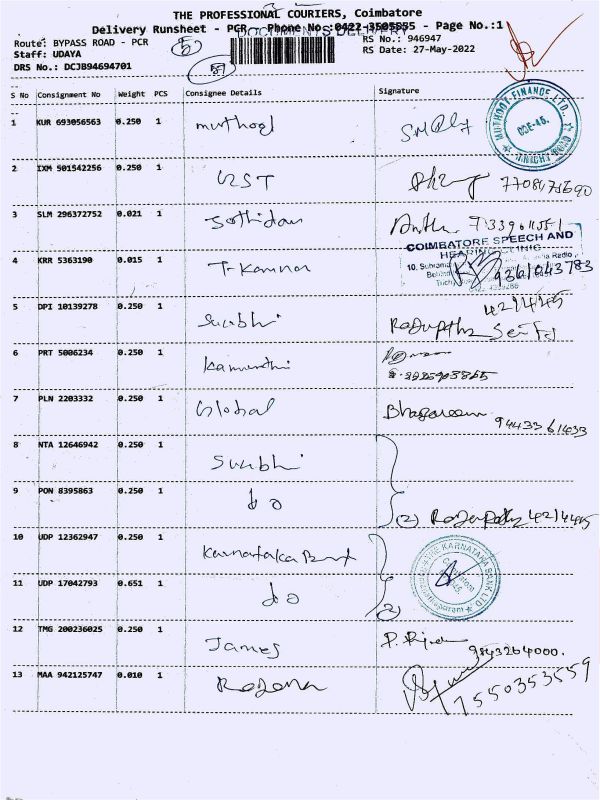 THE PROFESSIONAL COURIERS, Coimbatore
Delivery Runsheet - PCR - Phone No.:0422-3505855 - Page No.:1
DOCUMENTS DELIVERY
Route: BYPASS ROAD - PCR
RS No.: 946947
Staff: UDAYA
RS Date: 27-May-2022
DRS No.: DCJB94694701
S No Consignment No Weight PCS Consignee Details Signature
1 KUR 693056563 0.250 1 muthoot
MUTHOOT FINANCE LTD.,
COE-45.
TRICHY ROAD
2 IXM 501542256 0.250 1 GST
3 SLM 296372752 0.021 1
COIMBATORE SPEECH AND
HEARING CLINIC
4 KRR 5363190 0.015 1 9361043783
5 DPI 10139278 0.250 1 Surabhi
4214445
6 PRT 5006234 0.250 1
7 PLN 2203332 0.250 1 Global
9443361433
8 NTA 12646942 0.250 1 Surabhi
9 PON 8395863 0.250 1 do (2) 4214445
10 UDP 12362947 0.250 1 Karnataka Bank
THE KARNATAKA BANK LTD
Coimbatore
11 UDP 17042793 0.651 1 do (2)
12 TMG 200236025 0.250 1 James
9843264000.
13 MAA 942125747 0.010 1
7550353559